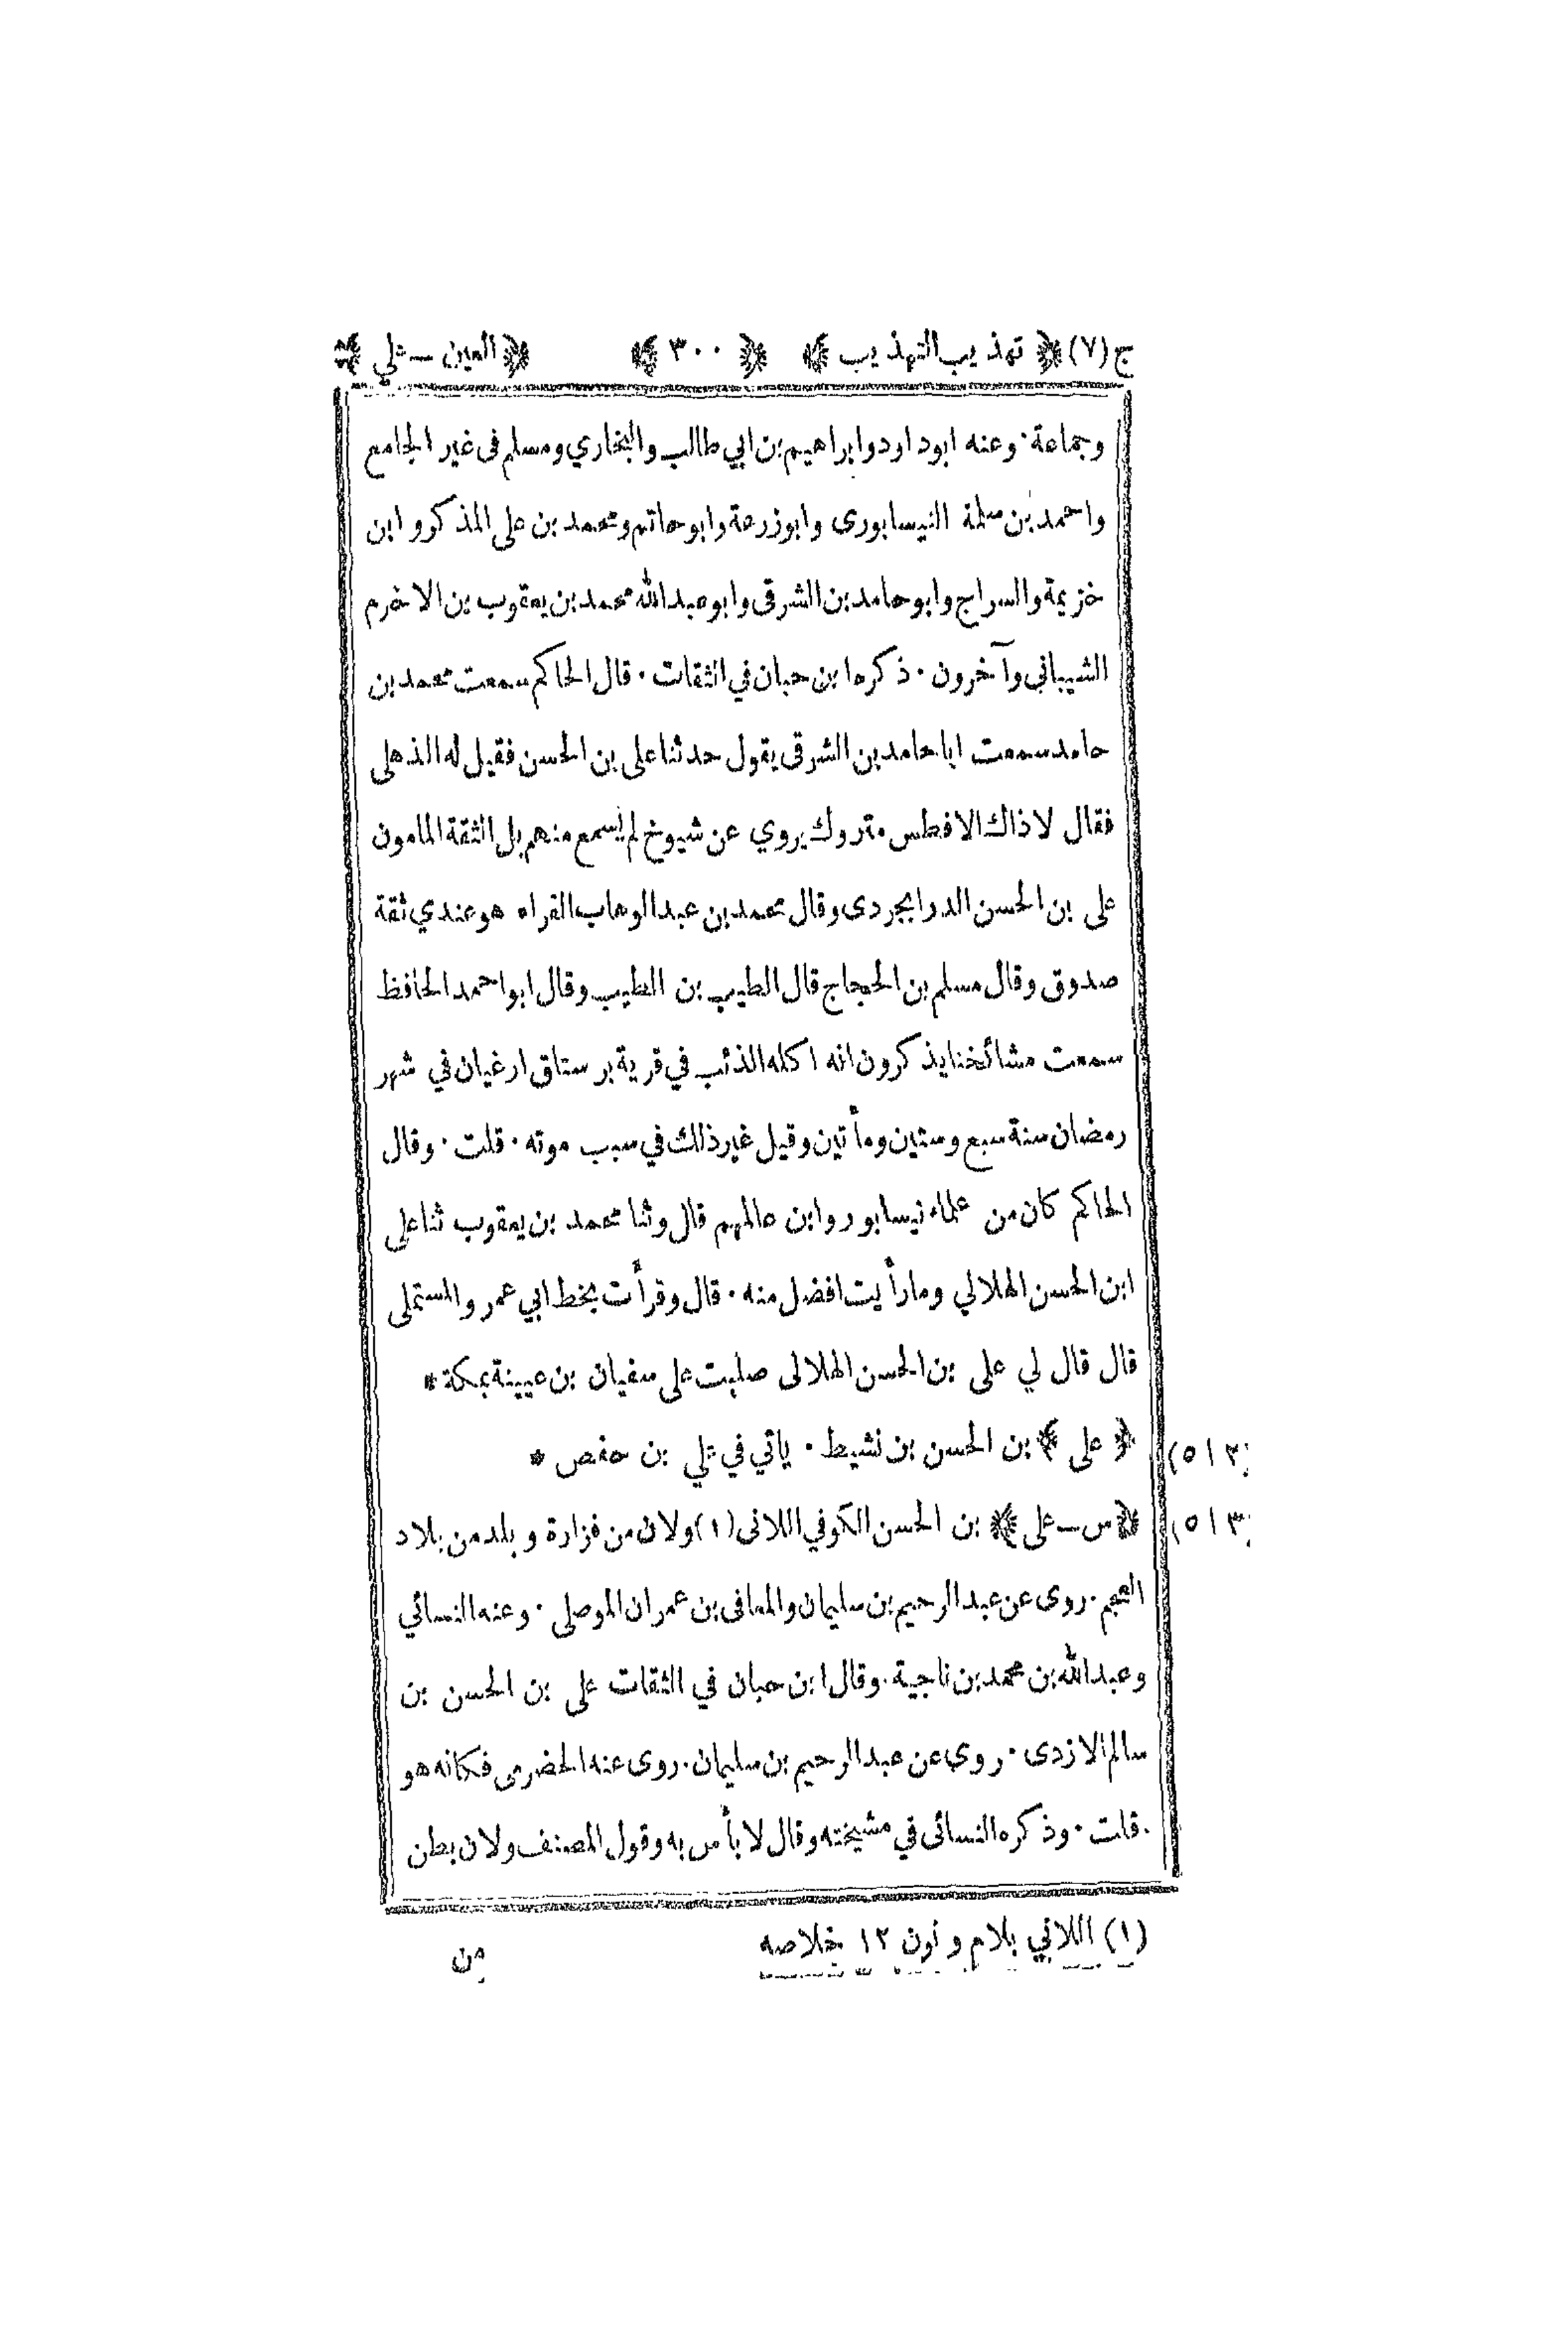 ج (٧) ﴿ تهذيب التهذيب ﴾ ﴿ ٣٠٠ ﴾ ﴿ العين - علي ﴾
وجماعة . وعنه ابو داود وابراهيم بن ابي طالب والبخاري ومسلم فى غير الجامع
واحمد بن سلمة النيسابورى وابو زرعة وابو حاتم ومحمد بن على المذكر و ابن
خزيمة والسراج وابو حامد بن الشرقى وابو عبد الله محمد بن يعقوب بن الاخرم
الشيبانى وآخرون . ذكره ابن حبان في الثقات . قال الحاكم سمعت محمد بن
حامد سمعت ابا حامد بن الشرقى يقول حدثنا على بن الحسن فقيل له الذهلى
فقال لا ذاك الافطس متروك يروي عن شيوخ لم يسمع منهم بل الثقة المامون
على بن الحسن الدرابجردى وقال محمد بن عبد الوهاب الفراء هو عندي ثقة
صدوق وقال مسلم بن الحجاج قال الطيب بن الطيب وقال ابو احمد الحافظ
سمعت مشائخنا يذكرون انه اكله الذئب في قرية برستاق ارغيان في شهر
رمضان سنة سبع وستين ومأتين وقيل غير ذلك في سبب موته . قلت . وقال
الحاكم كان من علماء نيسابور وابن عالمهم قال وثنا محمد بن يعقوب ثنا على
ابن الحسن الهلالي ومارأيت افضل منه . قال وقرأت بخط ابي عمرو المستملى
قال قال لي على بن الحسن الهلالى صليت على سفيان بن عيينة بمكة *
﴿ على ﴾ بن الحسن بن نشيط . ياتي في علي بن حفص *
(٥١٢
﴿ س - على ﴾ بن الحسن الكوفي اللانى (١) ولان من فزارة و بلد من بلاد
(٥١٣
العجم . روى عن عبد الرحيم بن سليمان والمعافى بن عمران الموصلى . وعنه النسائي
وعبد الله بن محمد بن ناجية . وقال ابن حبان في الثقات على بن الحسن بن
سالم الازدى . روى عن عبد الرحيم بن سليمان . روى عنه الحضرمى فكانه هو
. قلت . وذكره النسائى في مشيخته وقال لا بأس به وقول المصنف ولان بطن
(١) اللاني بلام و نون ١٢ خلاصه
من